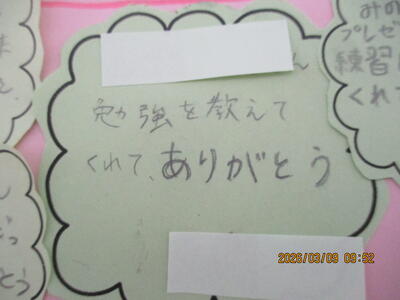 ん
勉強を教えて
くれて、ありがとう
みの
プレゼ
練習
くれて
とう
2026/03/09 09:52